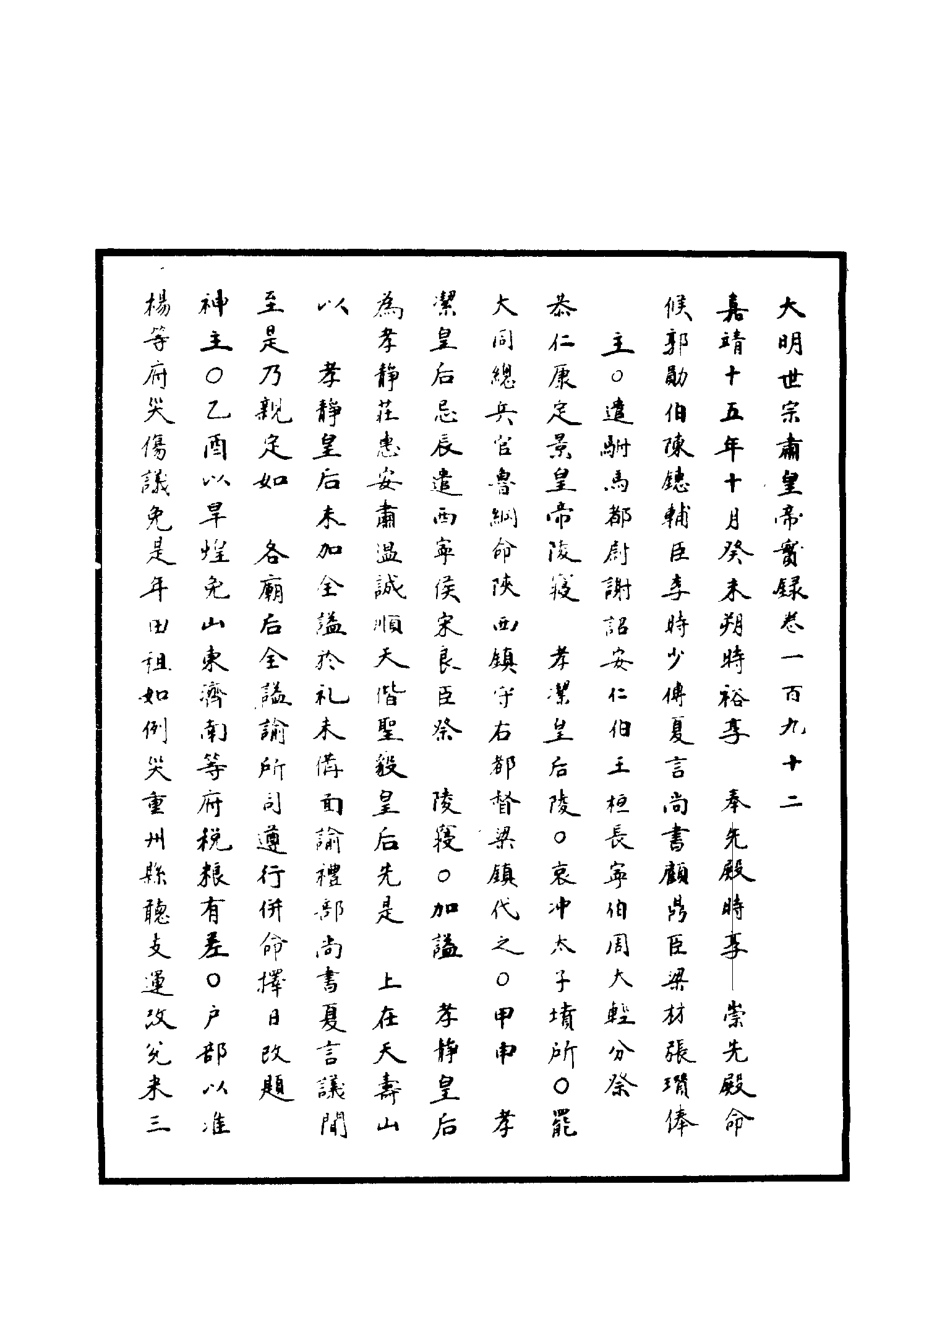 大明世宗肅皇帝實録卷一百九十二
嘉靖十五年十月癸未朔時祫享　奉先殿時享　崇先殿命
候郭勛伯陳鏸輔臣李時少傅夏言尚書顧鼎臣梁材張瓚俸
主○遣駙馬都尉謝詔安仁伯王桓長寧伯周大輕分祭
恭仁康定景皇帝陵寢　孝潔皇后陵○哀冲太子墳所○罷
大同總兵官魯綱命陝西鎮守右都督梁鎮代之○甲申　孝
潔皇后忌辰遣西寧侯宋良臣祭　陵寢○加謚　孝静皇后
為孝静莊惠安肅温誠順天偕聖毅皇后先是　上在天壽山
以　孝静皇后未加全謚於礼未備面諭禮部尚書夏言議聞
至是乃親定如　各廟后全謚諭所司遵行併命擇日改題
神主○乙酉以旱煌免山東濟南等府税粮有差○户部以淮
楊等府災傷議免是年田租如例災重州縣聽支運改兊米三